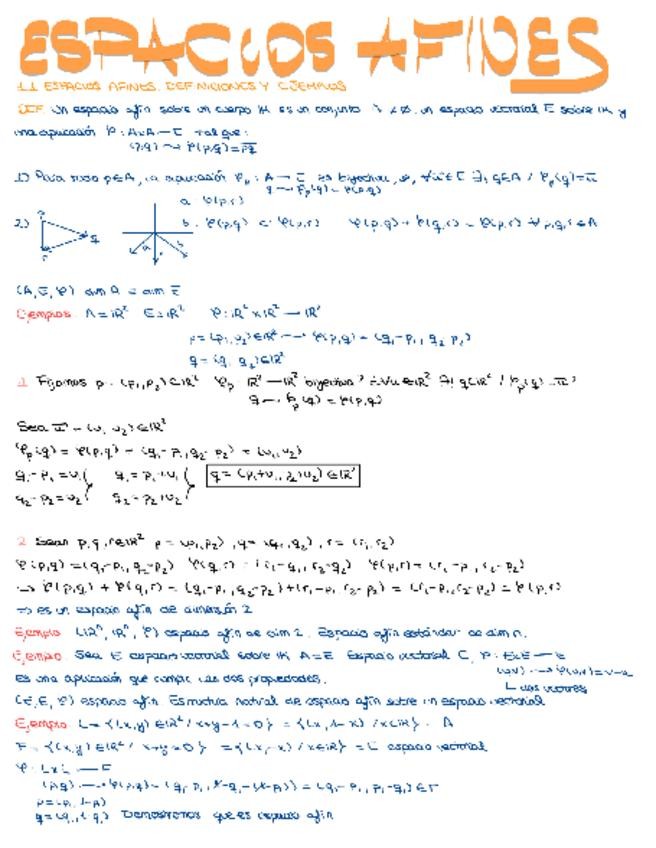 ESPACIOS AFINES
1.1 ESPACIOS AFINES. DEFINICIONES Y EJEMPLOS
DEF. Un espacio afín sobre un cuerpo IK es un conjunto A ≠ ∅, un espacio vectorial E sobre IK y
una aplicación φ: A×A → E tal que:
(p,q) → φ(p,q) = pq
1) Para todo p∈A, la aplicación φp: A → E es bijectiva, ∀u∈E ∃! q∈A / φp(q) = u
q → φp(q) = φ(p,q)
2)
φ(p,q) + φ(q,r) = φ(p,r) ∀p,q,r∈A
(A,E,φ) dim A = dim E
Ejemplos. A = IR² E = IR² φ: IR²×IR² → IR²
p = (p1,p2)∈IR² → φ(p,q) = (q1-p1, q2-p2)
q = (q1,q2)∈IR²
1 Fijamos p = (p1,p2)∈IR² φp IR² → IR² bijectiva? ∀u∈IR² ∃! q∈IR² / φp(q) = u?
q → φp(q) = φ(p,q)
Sea u = (u1,u2)∈IR²
φp(q) = φ(p,q) = (q1-p1, q2-p2) = (u1,u2)
q1-p1=u1 q1=p1+u1 q = (p1+u1, p2+u2)∈IR²
q2-p2=u2 q2=p2+u2
2 Sean p,q,r∈IR² p = (p1,p2), q = (q1,q2), r = (r1,r2)
φ(p,q) = (q1-p1, q2-p2) φ(q,r) = (r1-q1, r2-q2) φ(p,r) = (r1-p1, r2-p2)
→ φ(p,q) + φ(q,r) = (q1-p1, q2-p2)+(r1-q1, r2-q2) = (r1-p1, r2-p2) = φ(p,r)
⇒ es un espacio afín de dimensión 2
Ejemplo (IRⁿ, IRⁿ, φ) espacio afín de dim 2. Espacio afín estándar de dim n.
Ejemplo. Sea E espacio vectorial sobre IK A=E Espacio vectorial E, φ: E×E → E
(u,v) → φ(u,v) = v-u
Es una aplicación que cumple las dos propiedades.
(E,E,φ) espacio afín Estructura natural de espacio afín sobre un espacio vectorial
Ejemplo L = {(x,y)∈IR² / x+y-1=0} = {(x,1-x) / x∈IR} = A
F = {(x,y)∈IR² / x+y=0} = {(x,-x) / x∈IR} = E espacio vectorial
φ: L×L → F
(p,q) → φ(p,q) = (q1-p1, 1-q1-(1-p1)) = (q1-p1, p1-q1)∈F
p=(p1,1-p1)
q=(q1,1-q1) Demostremos que es espacio afín